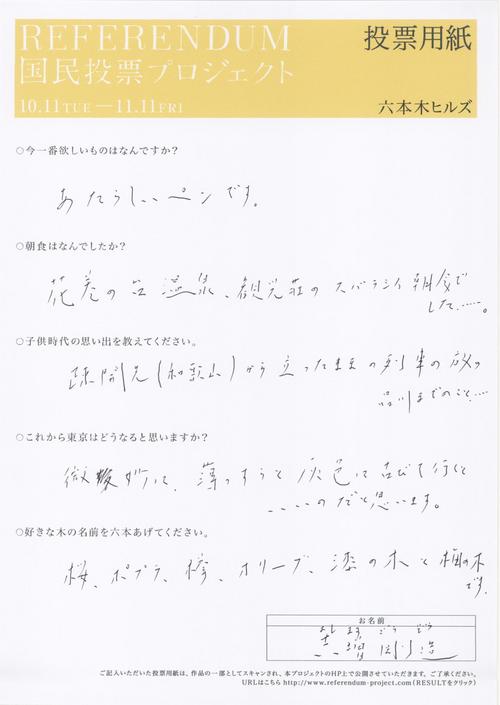 REFERENDUM
国民投票プロジェクト
10.11TUE—11.11FRI
投票用紙
六本木ヒルズ
○今一番欲しいものはなんですか?
あたらしいペンです。
○朝食はなんでしたか?
花巻の台温泉、観光荘のスバラシイ朝食で
した……。
○子供時代の思い出を教えてください。
疎開先(和歌山)から立ったままの列車の旅
品川までのこと…
○これから東京はどうなると思いますか?
微妙に、薄っすらと灰色に古びて行く
……のだと思います。
○好きな木の名前を六本あげてください。
桜、ポプラ、欅、オリーブ、漆の木と梅の木
です。
お名前
よします ごうぞう
吉増剛造
ご記入いただいた投票用紙は、作品の一部としてスキャンされ、本プロジェクトのHP上で公開させていただきます。ご了承ください。
URLはこちら http://www.referendum-project.com (RESULTをクリック)